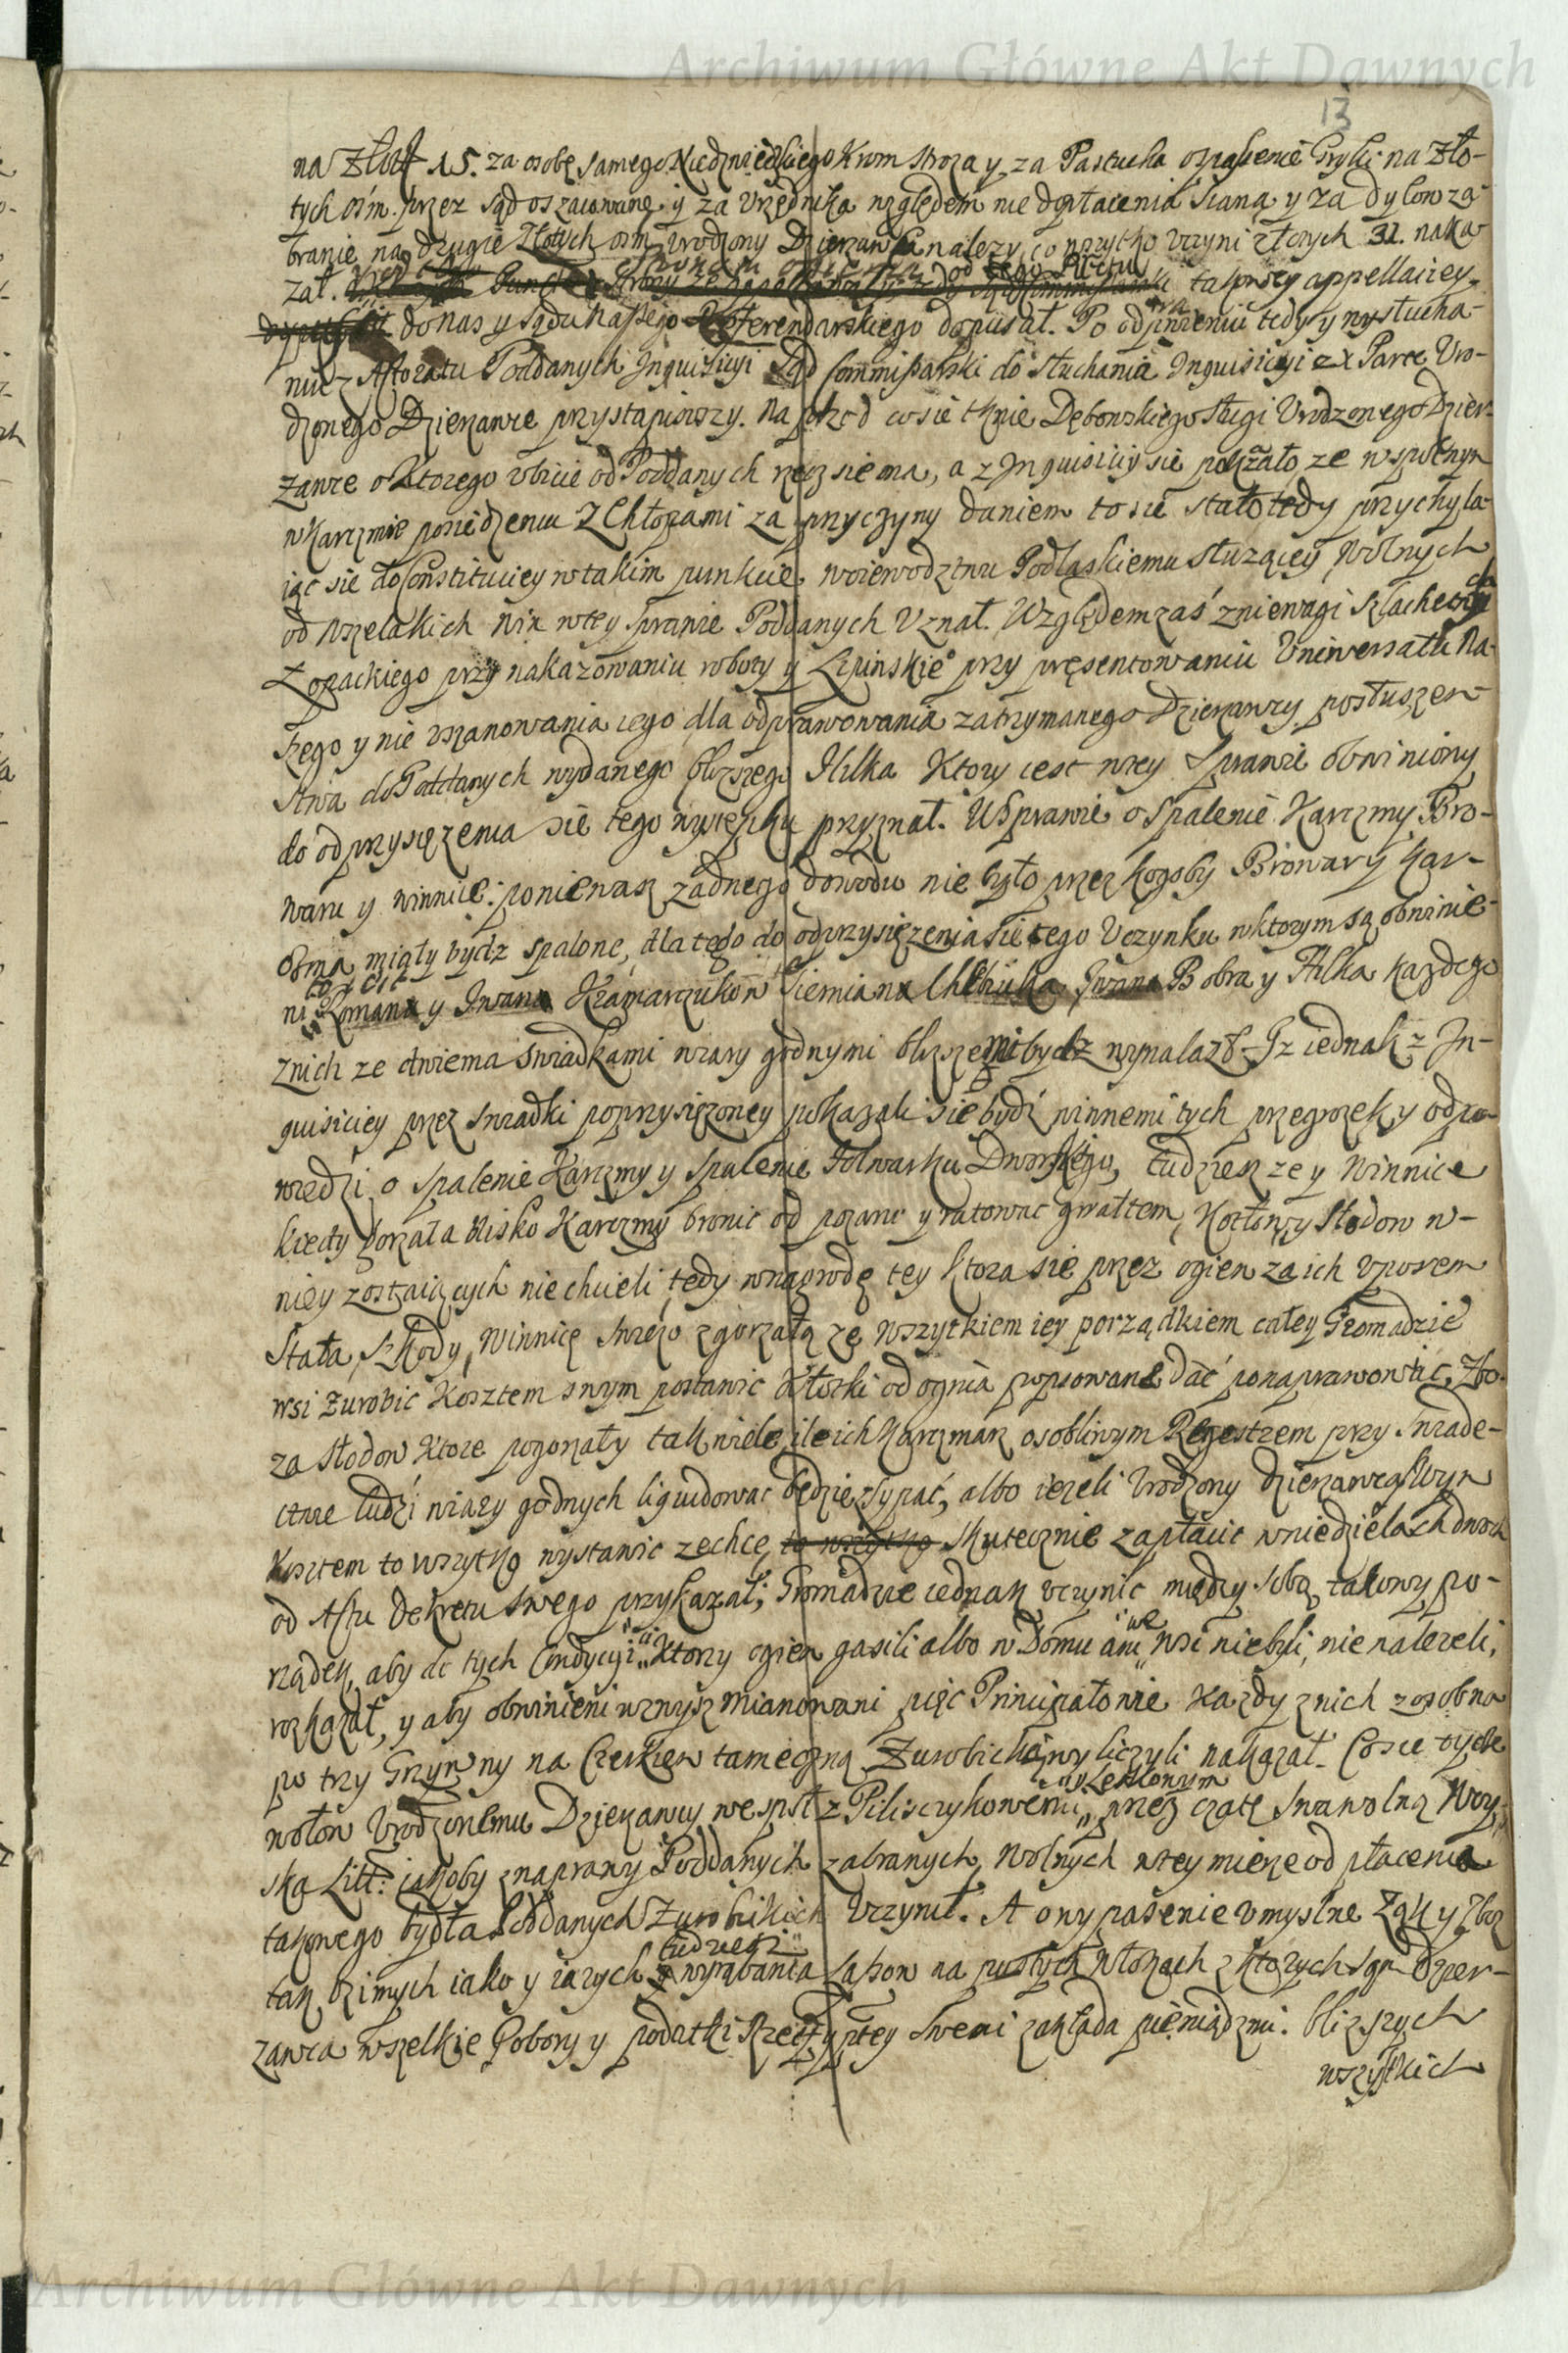 Archiwum Główne Akt Dawnych
13
na Złot 15. za osobę samego Niedzwiedzkiego Kum Stroza y za Pastucha o spalenie Gryki na Zło-
tych osm. przez sąd oszacowane, y za Urzędnika względem nie dopłacenia Siana y za dylow za-
branie na drugie Złotych osm Urodzony Dzierzawca nalezy, co wszytko Uczyni złotych 31. naka-
zał. od tego Punctu takowey appellaciey
do nas y Sądu Naszego Referendarskiego dopuscił. Po odprawieniu tedy y wysłucha-
niu z Attoratu Poddanych Inquizicyi Sąd Commissarski do słuchania Inquisicyi ex Parte Uro-
dzonego Dzierzawce przystąpiwszy. Na przod co sie tknie Dębowskiego sługi Urodzonego Dzier-
zawce o ktorego zbicie od Poddanych rzecz sie ma, a z Inquisiciy sie pokazało ze wspolnym
w Karczmie posiedzeniu z Chłopami za przyczyny daniem to sie stało tedy przychyla-
iąc sie do Constituciey w takim punkcie, woiewodztwu Podlaskiemu słuzącey Wolnych
od wszelakich win w tey sprawie Poddanych Uznał. Względem zaś zniewagi szlachet
Łopackiego przy nakazowaniu roboty y Lipinskieo przy pręsentowaniu Uniwersału Na-
szego y nie uszanowania iego dla odprawowania zatrzymanego Dzierzawcy posłuszen-
stwa do Poddanych wydanego blizszego Filka Ktory iest w tey Sprawie obwiniony
do odprzysięzenia sie tego występku przyznał. W Sprawie o Spalenie Karczmy Bro-
waru y winnice: poniewasz zadnego dowodu nie było przez kogoby Browary Kar-
czma miały bydz spalone, dla tego do odprzysięzenia sie tego Uczynku w ktorym są obwinie-
ni to iest Romana y Iwana Kramarczukow Siemiana Chlebiuka Iwana Bobra y Filka kazdego
z nich ze dwiema swiadkami wiary godnymi blizszemi bydz wynalazł. Iz iednak z In-
quisiciey przez swiadki poprzysięzoney pokazali sie bydź winnemi tych przegrozek y odpo-
wiedzi o spalenie Karczmy y spalenie Folwarku Dworskiego, tudziesz ze y Winnice
kiedy gorzała blisko Karczmy bronic od pozaru y ratowac gwałtem, Kotłow y Słodow w-
niey zostaiących nie chcieli, tedy w nagrodę tey ktora sie przez ogien za ich uporem
Stała szkody, Winnicę swiezo zgorzałą ze wszytkiem iey porządkiem całey Gromadzie
wsi Zurobic Kosztem swym postawic Kłotki od ognia popsowane dać ponaprawowac, Zbo-
za Słodow ktore pogorzały tak wiele ile ich Karczmarz osobliwym Regestrem przy swiade-
ctwie ludzi wiary godnych liquidowac będzie sypać, albo iezeli Urodzony dzierzawca swym
Kosztem to wszytko wystawic zechce, to wszytko skutecznie zapłacic w niedzielach dwoch
od Actu Dekretu swego przykazał; Gromadzie iednak uczynic między sobą takowy po-
rządek, aby do tych Condycyi ci ktorzy ogien gasili albo w Domu ani we wsi niebyli, nie nalezeli,
rozkazał, y aby obwinieni wzwysz mianowani pięc Principałowie kazdy z nich z osobna
po trzy Grzywny na Cerkiew tameczną Zurobicką wyliczyli nakazał. Co sie tycze
wołow Urodzonemu Dzierzawcy wespoł z Piliszczykowemi wyłożonym przez czatę Swawolną Woy-
ską Litt: iakoby z naprawy Poddanych zabranych, Wolnych w tey mierze od płacenia
takowego bydła Poddanych Zurobickich Uczynił. A o wypasenie umyslne Łąk y Zboz
tak ozimych iako y iarych tudziesz wyrąbania Lasow na pustych włokach z ktorych sąm Dzier-
zawca wszelkie Pobory y podatki Rzeczyptey Swemi zakłada pieniądzmi. blizszych
wszytkich
Archiwum Główne Akt Dawnych